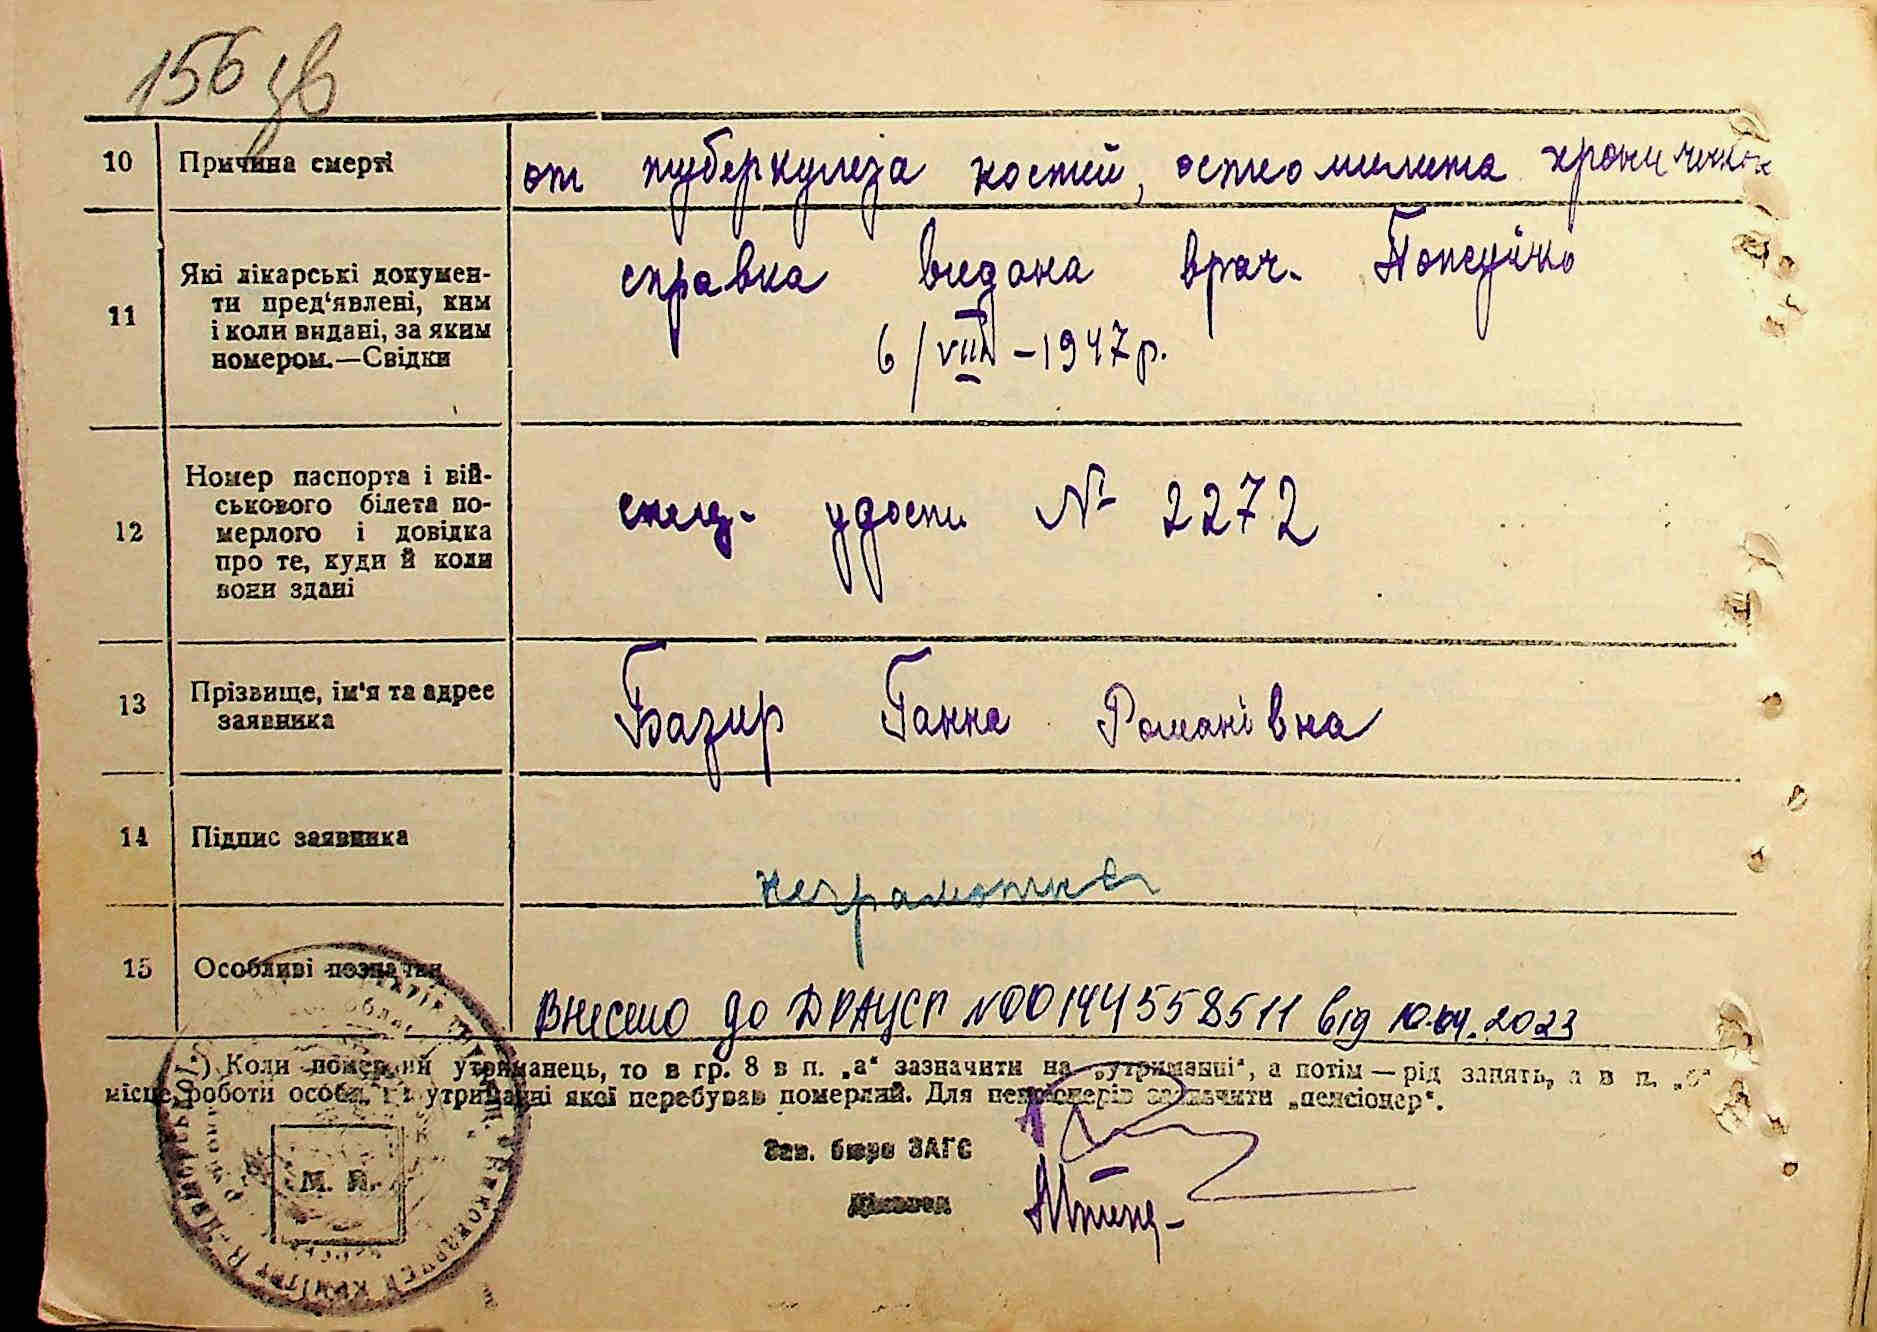 156 зв
10 Причина смерті от туберкулеза костей, остеомиелита хронических
11 Які лікарські докумен-
ти пред'явлені, ким
і коли видані, за яким
номером.—Свідки
справка видана врач.
6/VIII – 1947 р.
12 Номер паспорта і вій-
ськового білета по-
мерлого і довідка
про те, куди й коли
вони здані
удост № 2272
13 Прізвище, ім'я та адрес
заявника
Базир Ганна Романівна
14 Підпис заявника
неграмотна
15 Особливі позначки
Внесено до ДРАЦСГ №00144558511 від 10.04.2023
*) Коли померлий утриманець, то в гр. 8 в п. „а“ зазначити на „утриманні“, а потім — рід занять, а в п. „б“
місце роботи особи, на утриманні якої перебував померлий. Для пенсіонерів зазначити „пенсіонер“.
Зав. бюро ЗАГС
Діловод
М. П.